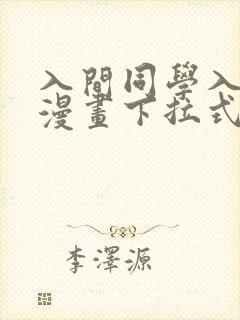 入間同學入
漫畫下拉式
李澤源